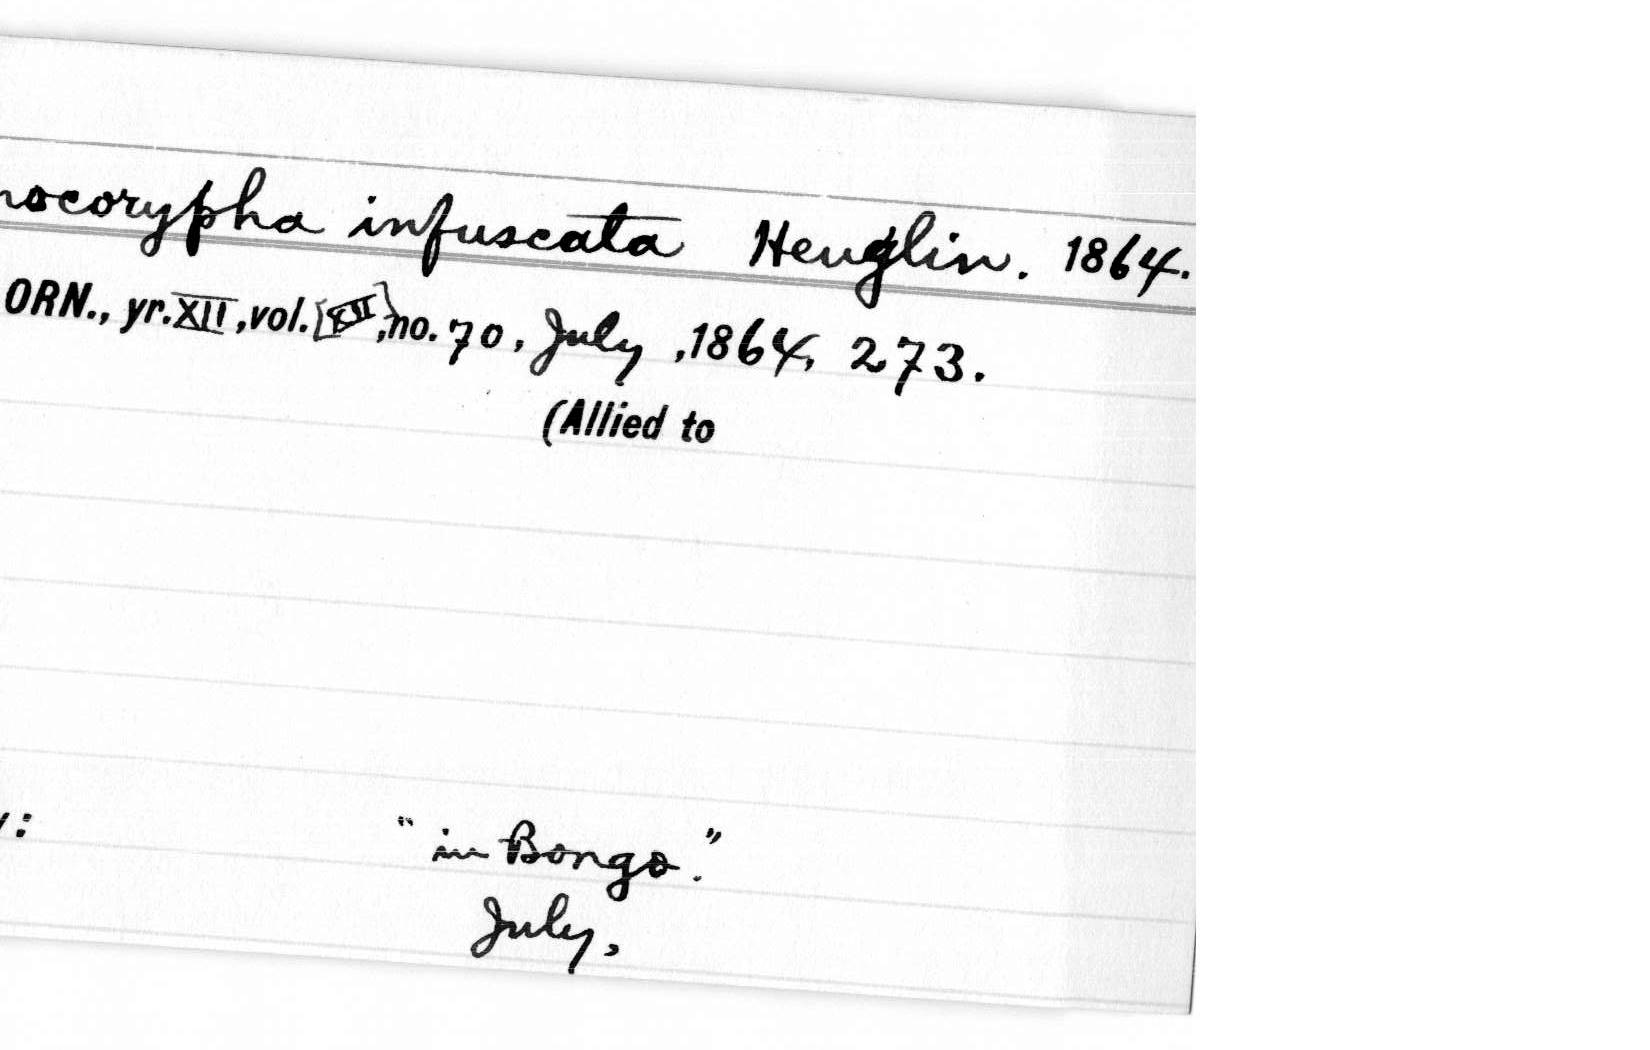 nocorypha infuscata Heuglin. 1864.
ORN., yr. XII, vol. [XII], no. 70, July, 1864, 273.
(Allied to
y:
"in Bongo."
July,